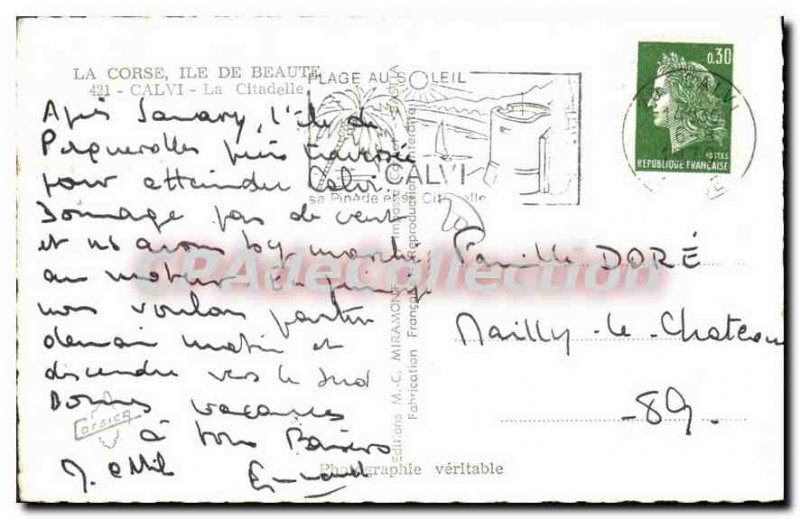 LA CORSE, ILE DE BEAUTE
421 - CALVI - La Citadelle
Après Sanary, l'île de
Porquerolles puis traversée
pour atteindre Calvi.
Dommage pas de vent
et ns avons bcp marché
au moteur
nous voulons partir
demain matin et
descendre vers le Sud
Bonnes vacances
à tous Baisers
CORSICA
PLAGE AU SOLEIL
CALVI
sa Pinède et sa Citadelle
0,30
POSTES
REPUBLIQUE FRANÇAISE
CALVI
Famille DORÉ
Mailly-le-Chateau
-89-
Editions M.-C. MIRAMONT
Fabrication Française Reproduction Interdite
Photographie véritable
SPAdeCollection